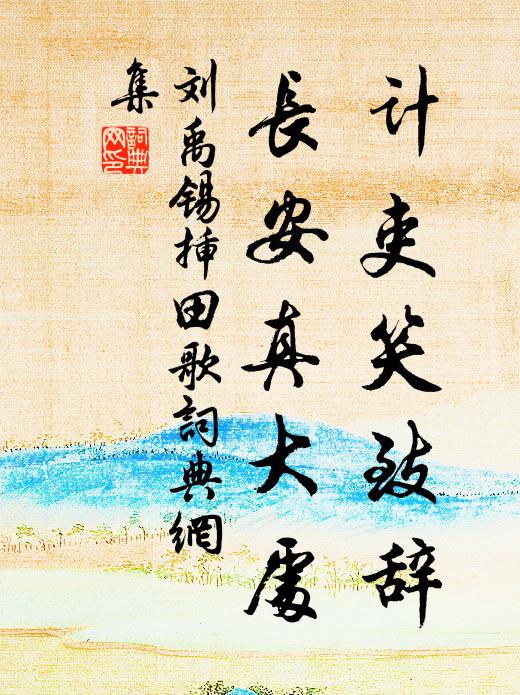 计吏笑致辞
長安真大處
刘禹锡插田歌詞典網
集
詞典
网印